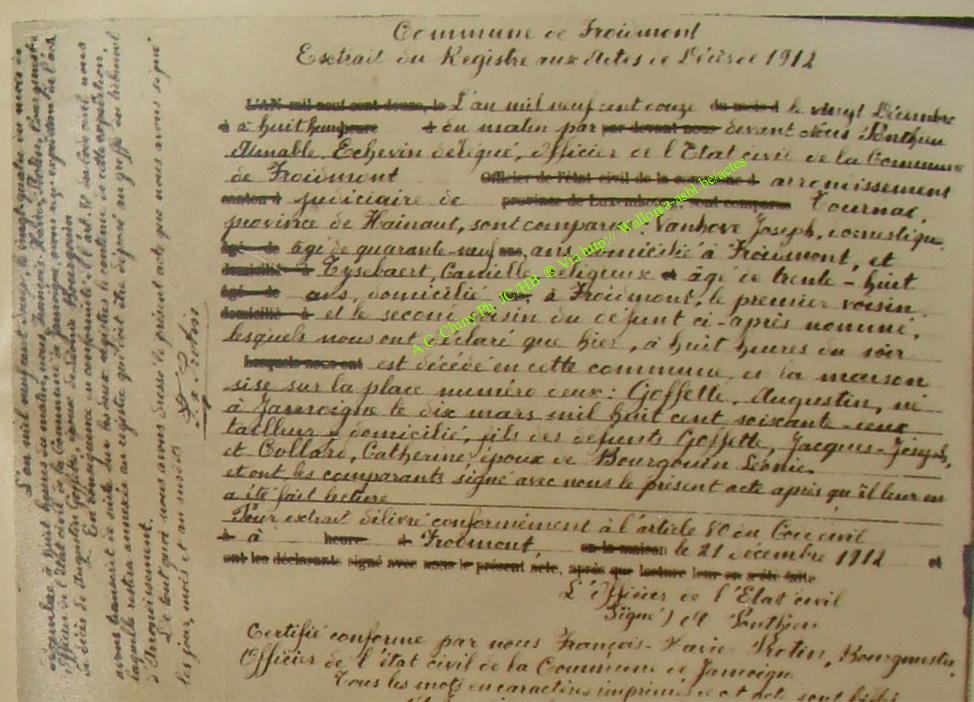 Commune de Froidmont
Extrait du Registre aux Actes de Décès de 1912
L'AN mil neuf cent douze, le L'an mil neuf cent douze du mois d le vingt Décembre
à à huit heures du matin par par devant nous devant Nous Ponthieu
Aimable, Echevin délégué, Officier de l'Etat civil de la Commune
de Froidmont Officier de l'état civil de la commune d arrondissement
canton d judiciaire de province de Luxembourg, sont comparus Tournai,
province de Hainaut, sont comparus: Vanhove Joseph, domestique,
âgé de âgé de quarante-neuf ans, ans, domicilié à Froidmont, et
domicilié à Tysebaert, Camille, religieux âgé de trente-huit
âgé de ans, domicilié à Froidmont, le premier voisin
domicilié à et le second voisin du défunt ci-après nommé,
lesquels nous ont déclaré que hier, à huit heures du soir
Lesquels nous ont est décédé en cette commune, en la maison
sise sur la place numéro deux: Goffette, Augustin, né
à Jamoigne le dix mars mil huit cent soixante-deux
tailleur, domicilié, fils des défunts Goffette, Jacques-Joseph,
et Collard, Catherine, époux de Bourgouin Léonie.
et ont les comparants signé avec nous le présent acte après qu'il leur en
a été fait lecture
Pour extrait délivré conformément à l'article 80 du Code civil
à à heure d Froidmont, en la maison le 21 décembre 1912 et
ont les déclarants signé avec nous le présent acte, après que lecture leur en a été faite
L'Officier de l'Etat civil
Signé) A Ponthieu
Certifié conforme par nous François-Xavier Protin, Bourgmestre
Officier de l'état civil de la Commune de Jamoigne
Tous les mots en caractères imprimés de cet acte sont biffés
L'an mil neuf cent douze, le vingt quatre du mois de
décembre à huit heures du matin, nous, François-Xavier, Protin, bourgmestre
officier de l'état civil de la Commune de Jamoigne, avons reçu expédition de l'acte
de décès de Augustin Goffette, époux de Léonie Bourgouin
En conséquence en conformité de l'art. 80 du Code civil, nous
avons transcrit de suite sur les deux registres le contenu de cette expédition,
laquelle restera annexée au registre qui doit être déposé au greffe du tribunal
d'arrondissement.
De tout quoi nous avons dressé le présent acte que nous avons signé
les jour, mois et an susdits
Protin
A.G. Chiny Ph. JC/HB ® Via http:// Wallonia-asbl.be/actes